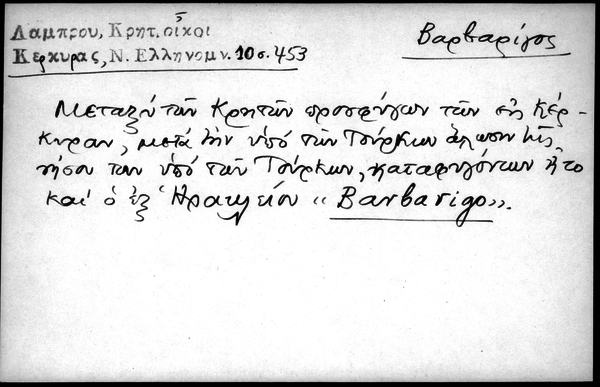 Λαμπρου, Κρητ. οἶκοι
Βαρβαρίγος
Κερκυρας, Ν. Ελληνομν. 10 σ. 453
Μεταξύ τῶν Κρητῶν προσφύγων τῶν εἰς Κέρ-
κυραν, μετά τήν ὑπό τῶν Τούρκων ἅλωσιν τῆς
νήσου των ὑπό τῶν Τούρκων, καταφυγόντων ἦτο
καί ὁ ἐξ Ἡρακλείου « Barbarigo ».